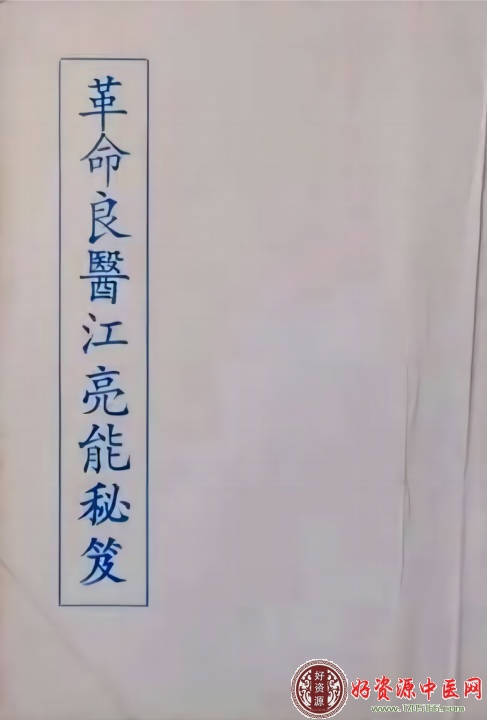 革命良醫江亮能秘笈
好资源
好资源中医网